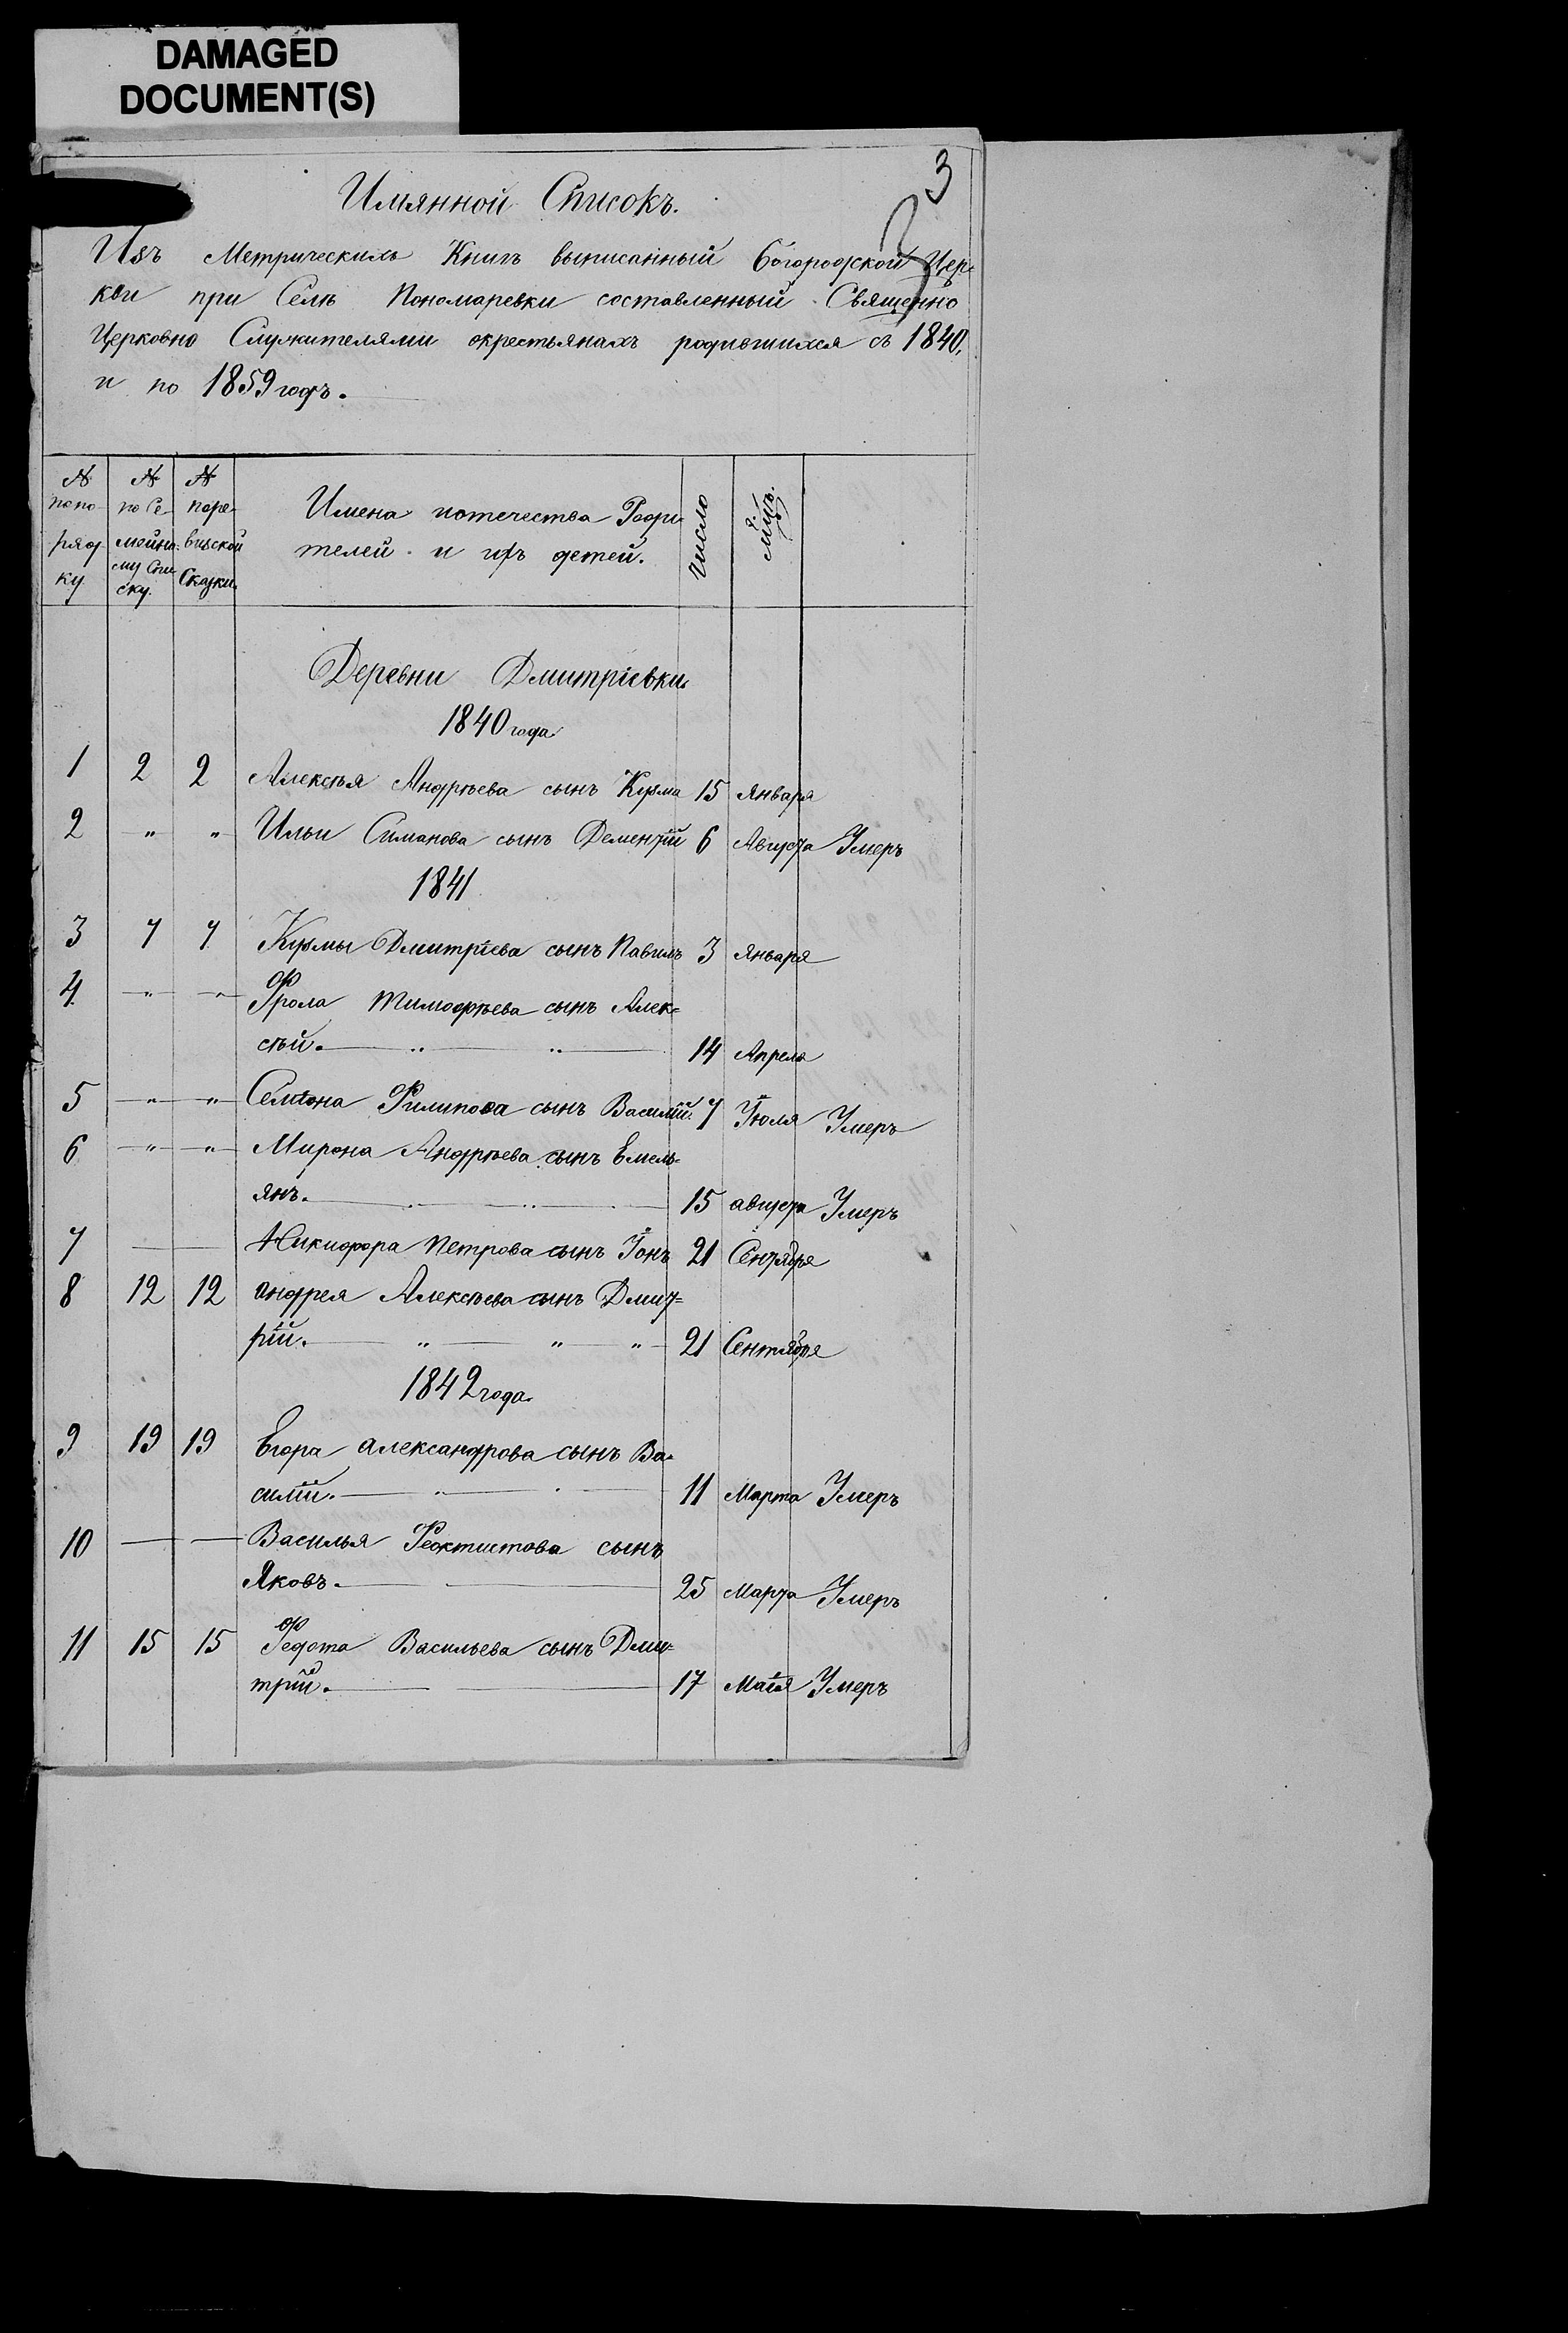 DAMAGED
DOCUMENT(S)
3
Имянной Списокъ.
Изъ Метрическихъ Книгъ выписанный Богородской Цер-
кви при Селѣ Пономаревки составленный Священно
Церковно Служителями окрестьянахъ родившихся съ 1840,
и по 1859 годъ.
№ попо-ряд-ку № по Се-мейно-му Спи-ску. № поре-визской Сказки. Имена иотечества Роди-телей и ихъ детей. Число М-цъ.
Деревни Дмитріевки.
1840 года
1 2 2 Алексѣя Андрѣева сынъ Кузма 15 Января
2 " " Ильи Симанова сынъ Дементій 6 Августа Умеръ
1841
3 7 7 Кузмы Дмитріева сынъ Павилъ 3 Января
4. " " Фрола Тимофѣева сынъ Алек=
сѣй. " " 14 Апреля
5 " " Семіона Филипова сынъ Василій. 7 Іюля Умеръ
6 " " Мирона Андрѣева сынъ Емель-
янъ. " " 15 августа Умеръ
7 — — Никифора Петрова сынъ Іонъ 21 Сентября
8 12 12 андрея Алексѣева сынъ Дмит=
рій. " " " 21 Сентября
1842 года.
9 19 19 Егора александрова сынъ Ва-
силій. " 11 Марта Умеръ
10 — — Василья Феоктистова сынъ
Яковъ. 25 Марта Умеръ
11 15 15 Федота Васильева сынъ Дми=
трій. 17 Маія Умеръ